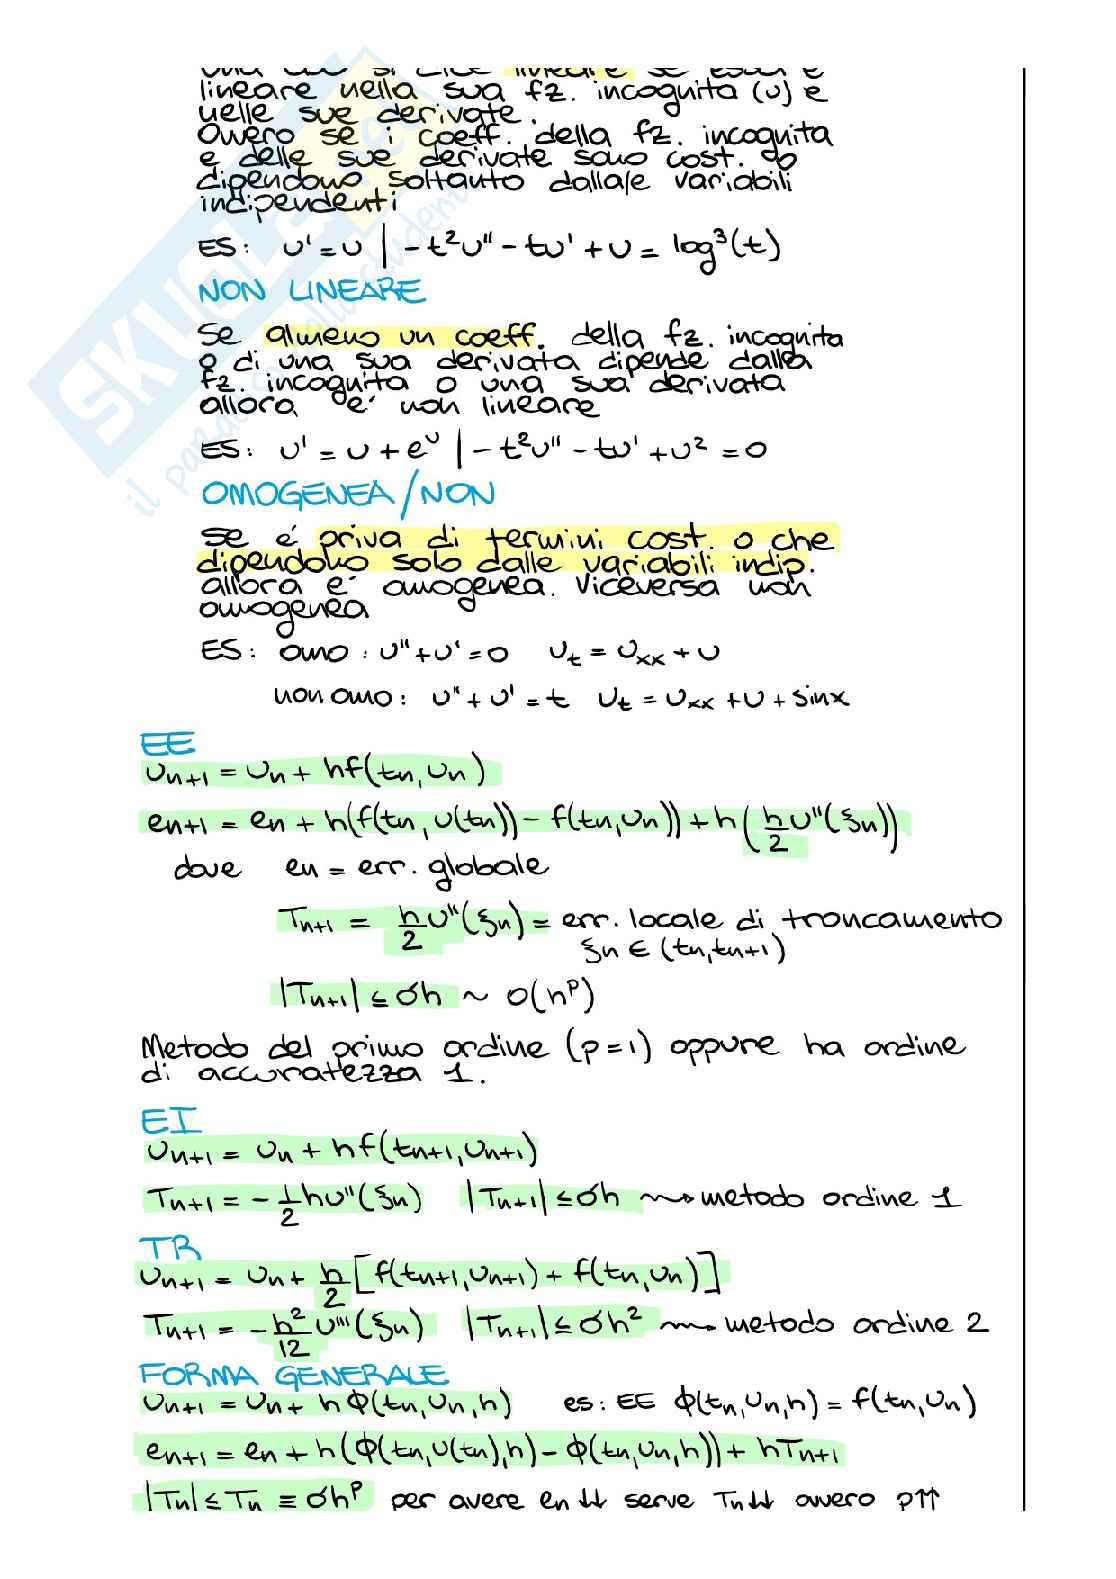 una si dice lineare se essa è
lineare nella sua fz. incognita (u) e
nelle sue derivate.
Ovvero se i coeff. della fz. incognita
e delle sue derivate sono cost. o
dipendono soltanto dalla/e variabili
indipendenti
ES: u' = u | -t²u'' - tu' + u = log³(t)
NON LINEARE
Se almeno un coeff. della fz. incognita
o di una sua derivata dipende dalla
fz. incognita o una sua derivata
allora è non lineare
ES: u' = u + eᵘ | -t²u'' - tu' + u² = 0
OMOGENEA/NON
Se é priva di termini cost. o che
dipendono solo dalle variabili indip.
allora é omogenea. Viceversa non
omogenea
ES: omo: u''+u'=0 u_t = u_xx + u
non omo: u'' + u' = t u_t = u_xx + u + sinx
EE
u_n+1 = u_n + hf(t_n, u_n)
e_n+1 = e_n + h(f(t_n, u(t_n)) - f(t_n, u_n)) + h(h/2 u''(ξ_n))
dove e_n = err. globale
T_n+1 = h/2 u''(ξ_n) = err. locale di troncamento
ξ_n ∈ (t_n, t_n+1)
|T_n+1| ≤ σh ~ O(h^p)
Metodo del primo ordine (p=1) oppure ha ordine
di accuratezza 1.
EI
u_n+1 = u_n + hf(t_n+1, u_n+1)
T_n+1 = -1/2 hu''(ξ_n) |T_n+1| ≤ σh ⇝ metodo ordine 1
TR
u_n+1 = u_n + h/2 [f(t_n+1, u_n+1) + f(t_n, u_n)]
T_n+1 = -h²/12 u'''(ξ_n) |T_n+1| ≤ σh² ⇝ metodo ordine 2
FORMA GENERALE
u_n+1 = u_n + hϕ(t_n, u_n, h) es: EE ϕ(t_n, u_n, h) = f(t_n, u_n)
e_n+1 = e_n + h(ϕ(t_n, u(t_n), h) - ϕ(t_n, u_n, h)) + hT_n+1
|T_n| ≤ T_n ≡ σh^p per avere e_n ↓↓ serve T_n ↓↓ ovvero p↑↑